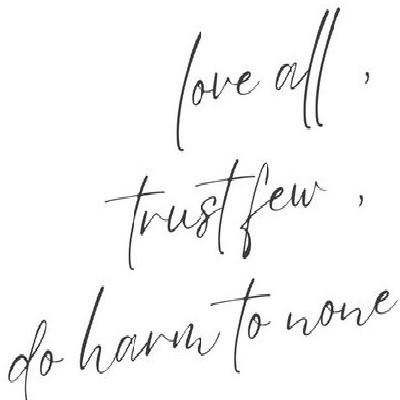 love all ,
trust few ,
do harm to none